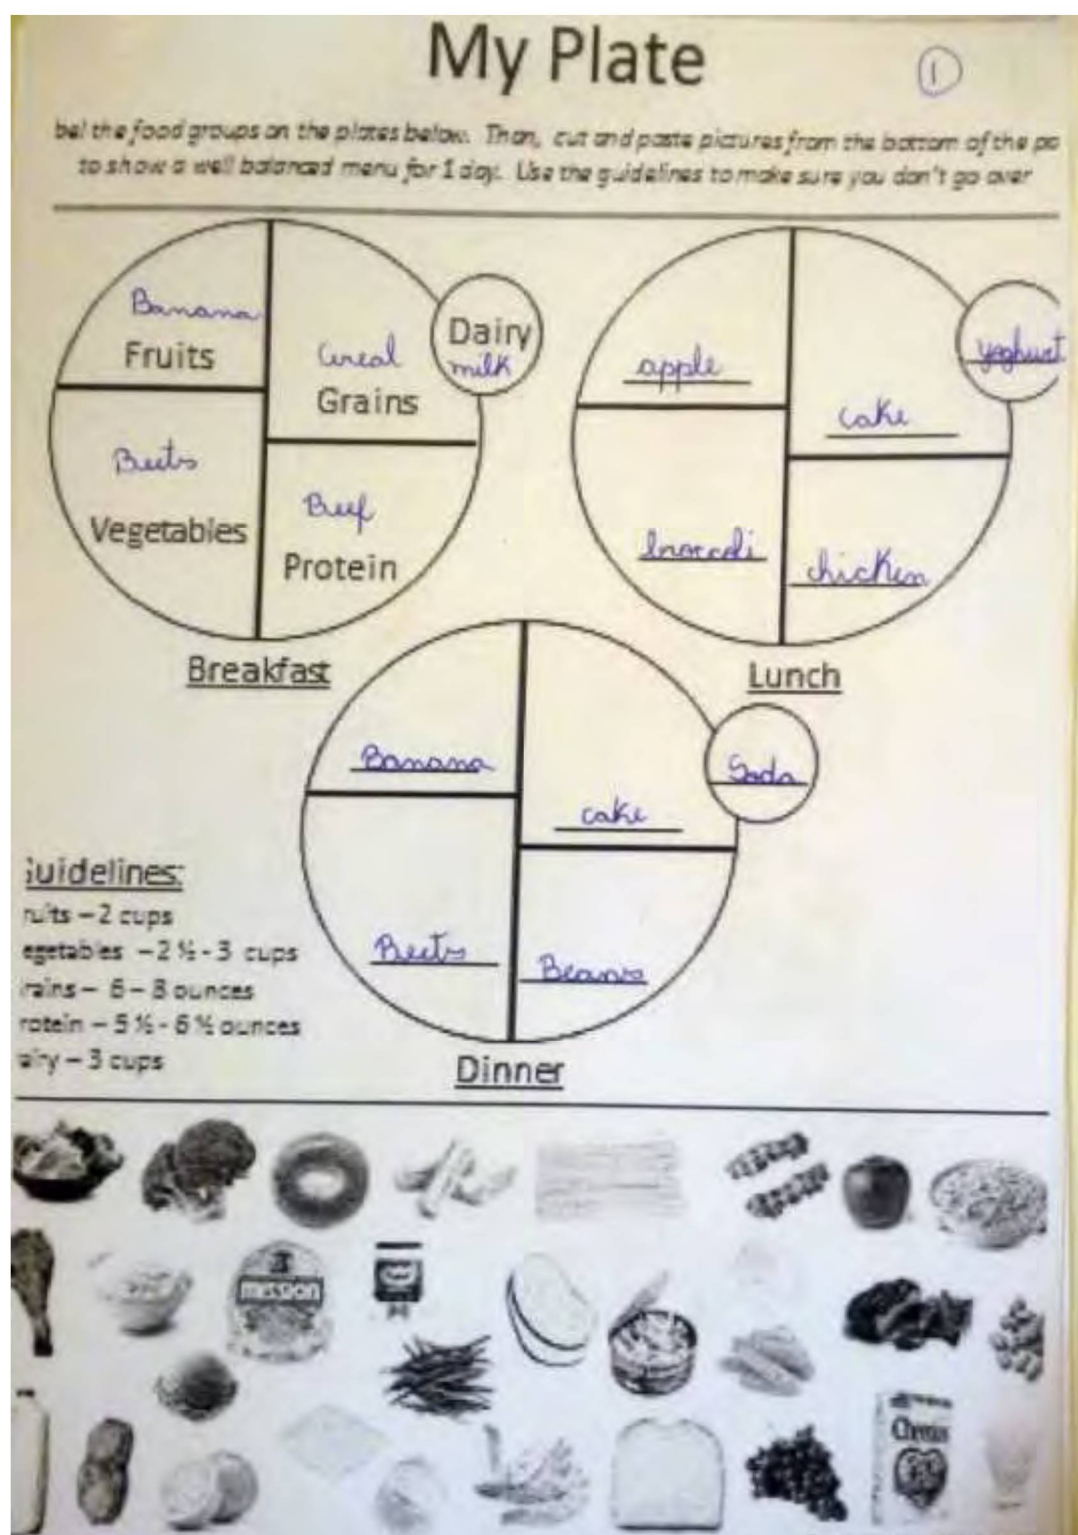 My Plate
1
bel the food groups on the plates below. Then, cut and paste pictures from the bottom of the pa
to show a well balanced menu for 1 day. Use the guidelines to make sure you don't go over
Banana
Fruits
Cereal
Grains
Dairy
milk
Beets
Vegetables
Beef
Protein
Breakfast
apple
cake
yoghurt
broccoli
chicken
Lunch
Banana
cake
Soda
Beets
Beans
Dinner
uidelines:
ruits – 2 cups
egetables – 2 ½ - 3 cups
rains – 6 – 8 ounces
rotein – 5 ½ - 6 ½ ounces
airy – 3 cups
mission